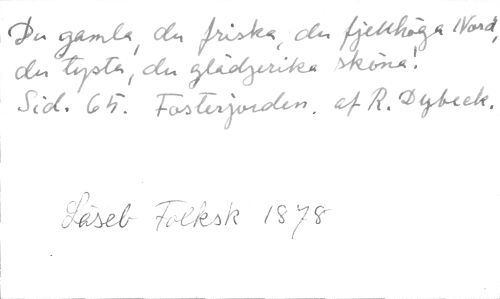 Du gamla, du friska, du fjellhöga Nord,
du tysta, du glädjerika sköna!
Sid. 65. Fosterjorden. af R. Dybeck.
Läseb Folksk 1878